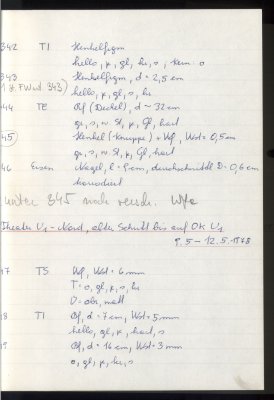 342 TI Henkelfrgm
hello, k, gl, hr, s, Kern: o
343 Henkelfrgm, d = 2,5 cm
(1 gr. FWvd. 343) hello, k, gl, s, hr
44 TE Rf (Deckel), d ~ 32 cm
gr, s, w. St, k, Gl, hart
45) Henkel (Knuppe) + Wf, Wst = 0,5 cm
gr, s, w. St, k, Gl, hart
46 Eisen Nagel, l = cm, durchschnittl D = 0,6 cm
korrodiert
unter 345 noch versch. Wfe
Theater U's - Nord, alter Schutt bis auf OK U's
9.5 – 12.5.1978
47 TS Wf, Wst = 6 mm
T = o, gl, k, s, hr
Ü = obr, matt
48 TI Rf, d = 7 cm, Wst = 5 mm
hello, gl, k, hart, s
49 Rf, d = 16 cm, Wst = 3 mm
o, gl, k, hr, s